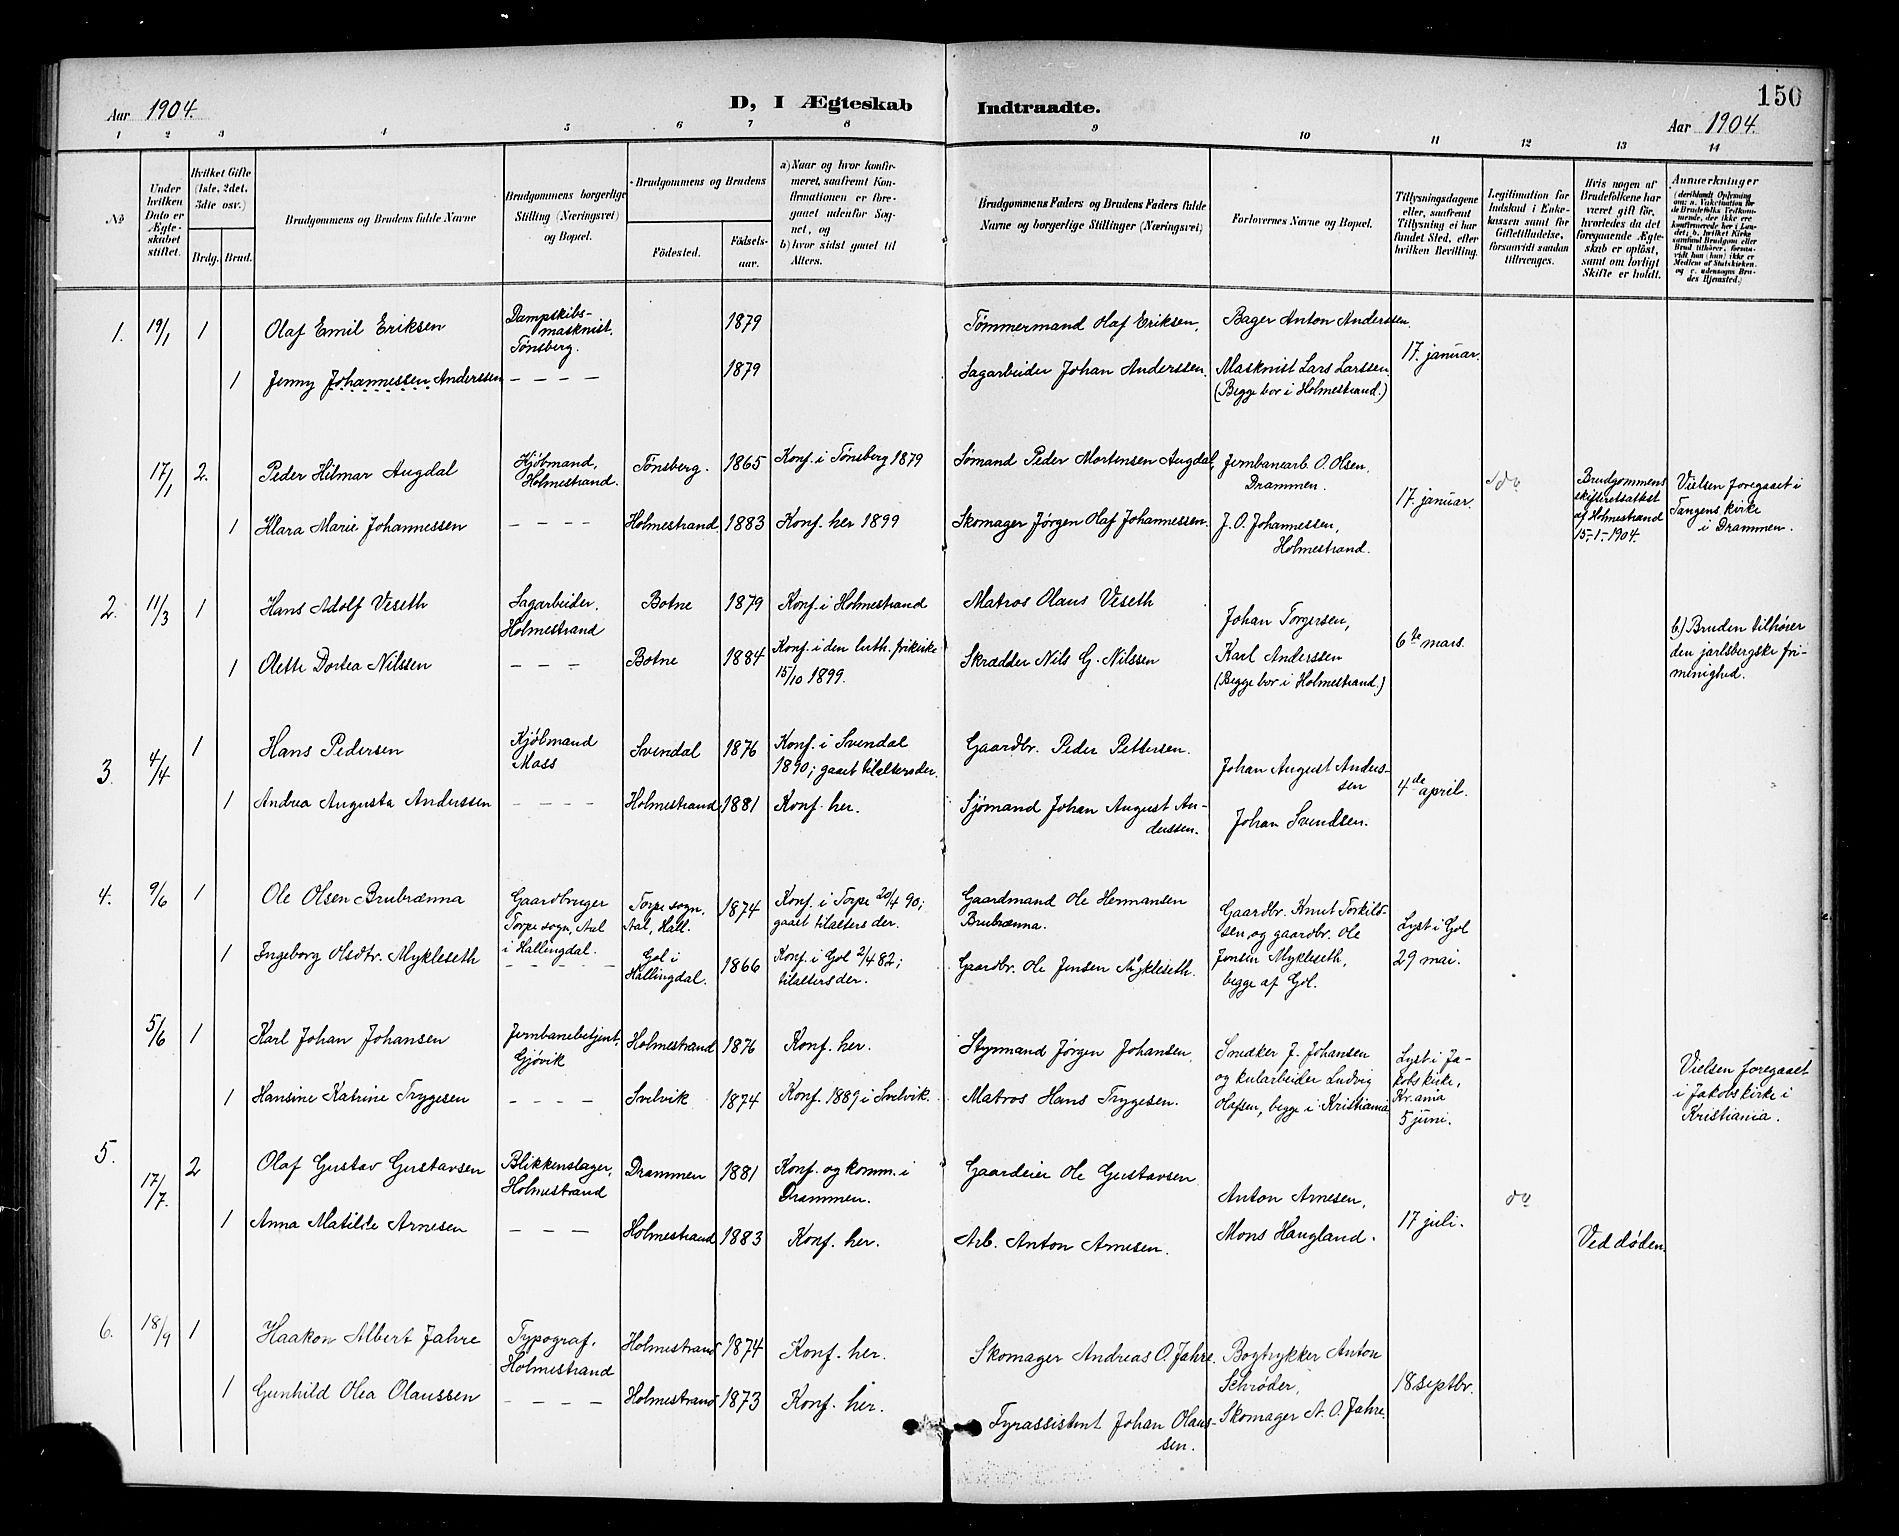 150
Aar 1904.
D, I Ægteskab Indtraadte.
Aar 1904.
1 2 3 4 5 6 7 8 9 10 11 12 13 14
No
Under hvilken Dato er Ægteskabet stiftet.
Hvilket Gifte (1ste, 2det, 3die osv.)
Brdg. Brud.
Brudgommens og Brudens fulde Navne
Brudgommens borgerlige Stilling (Næringsvei) og Bopæl.
Brudgommens og Brudens
Fødested.
Fødselsaar.
a) Naar og hvor konfirmeret, saafremt Konfirmationen er foregaaet udenfor Sognet, og
b) hvor sidst gaaet til Alters.
Brudgommens Faders og Brudens Faders fulde Navne og borgerlige Stillinger (Næringsvei)
Forlovernes Navne og Bopæl.
Tillysningsdagene eller, saafremt Tillysning ei har fundet Sted, efter hvilken Bevilling.
Legitimation for Indskud i Enkekassen samt for Giftetilladelse, forsaavidt saadan tiltrænges.
Hvis nogen af Brudefolkene har været gift før, hvorledes da det foregaaende Ægteskab er opløst, samt om lovligt Skifte er holdt.
Anmærkninger
(deriblandt Oplysning om: a. Vakcination for de Brudefolks Vedkommende, der ikke ere konfirmerede her i Landet; b. hvilket Kirkesamfund Brudgom eller Brud tilhører, forsaavidt han (hun) ikke er Medlem af Statskirken, og c. udensogns Brudes Hjemsted.)
1. 19/1 1 Olaf Emil Eriksen
Dampskibs-
maskinist.
Tønsberg.
1879
Tømmermand Olaf Eriksen,
Bager Anton Anderssen.
17. januar.
1 Jenny Johannessen Anderssen – – – – 1879
Sagarbeider Johan Anderssen.
Maskinist Lars Larssen
(Begge bor i Holmestrand.)
17/1 2. Peder Hilmar Augdal
Kjøbmand,
Holmestrand.
Tønsberg. 1865 Konf. i Tønsberg 1879
Sømand Peder Mortensen Augdal,
Jernbanearb. O. Olsen,
Drammen.
17. januar.
Brudgommens
skifteretsattest
af Holmestrand
15-1-1904.
Vielsen foregaaet i
Tangens kirke
i Drammen.
1 Klara Marie Johannessen – – – – Holmestrand. 1883 Konf. her 1899
Skomager Jørgen Olaf Johannessen.
J. O. Johannessen,
Holmestrand.
2. 11/3 1 Hans Adolf Veseth
Sagarbeider,
Holmestrand
Botne 1879 Konf. i Holmestrand
Matros Olaus Veseth
Johan Torgersen,
6te mars.
b) Bruden tilhører
den jarlsbergske fri-
menighed.
1 Olette Dortea Nilssen – – – Botne 1884
Konf. i den luth. frikirke
15/10 1899.
Skrædder Nils G. Nilssen
Karl Anderssen
(Begge bor i Holmestrand.)
3. 4/4 1 Hans Pedersen
Kjøbmand
Moss
Svendal 1876
Konf. i Svendal
1890; gaaet tilaltersder.
Gaardbr. Peder Pettersen.
Johan August Anders-
sen
4de april.
1 Andrea Augusta Anderssen – – – – Holmestrand 1881 Konf. her.
Sjømand Johan August An-
derssen.
Johan Svendsen.
4. 9/6 1 Ole Olsen Brubrænna
Gaardbruger
Torpe sogn, Aal
i Hallingdal.
Torpe sogn,
Aal, Hall.
1874
Konf. i Torpe 20/4 90;
gaaet tilalters der.
Gaardmand Ole Hermansen
Brubrænna.
Gaardbr. Knut Torkild-
sen, og gaardbr. Ole
Jensen Mykleseth,
begge af Gol.
Lyst i Gol
29 mai.
1 Ingeborg Olsdtr. Mykleseth – – – –
Gol i
Hallingdal.
1866
Konf. i Gol 2/4 82;
tilaltersder.
Gaardbr. Ole Jensen Mykleseth.
5/6 1 Karl Johan Johansen
Jernbanebetjent,
Gjøvik
Holmestrand 1876 Konf. her.
Styrmand Jørgen Johansen,
Snedker J. Johansen
og kularbeider Ludvig
Olafsen, begge i Kristiania
Lyst i Ja-
kobskirke,
Kr.ania
5 juni.
Vielsen foregaaet
i Jakobskirke i
Kristiania.
1 Hansine Katrine Trygesen – – – – Svelvik 1874 Konf. 1889 i Svelvik.
Matros Hans Trygesen.
5. 17/7. 2 Olaf Gustav Gustavsen
Blikkenslager,
Holmestrand
Drammen 1881
Konf. og komm. i
Drammen.
Gaardeier Ole Gustavsen
Anton Arnesen,
17 juli.
1 Anna Matilde Arnesen – – – Holmestrand 1883 Konf. her.
Arb. Anton Arnesen.
Mons Haugland.
Ved døden.
6. 18/9 1 Haakon Albert Jahre
Typograf,
Holmestrand
Holmestrand 1874 Konf. her.
Skomager Andreas O. Jahre.
Bogtrykker Anton
Schrøder,
18 septbr.
1 Gunhild Olea Olaussen – – – – Holmestrand 1873 Konf. her.
Fyrassistent Johan Olaus-
sen.
Skomager A. O. Jahre.